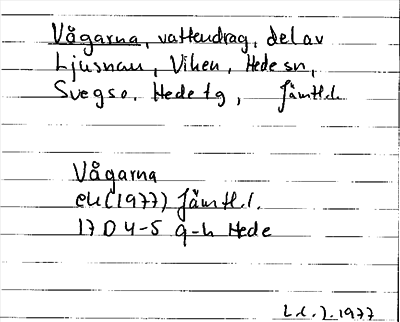 Vågarna, vattendrag, del av
Ljusnan, Viken, Hede sn,
Svegs o. Hede tg, Jämtl.l.
Vågarna
ek (1977) Jämtl.l.
17 D 4-5 g-h Hede
1977